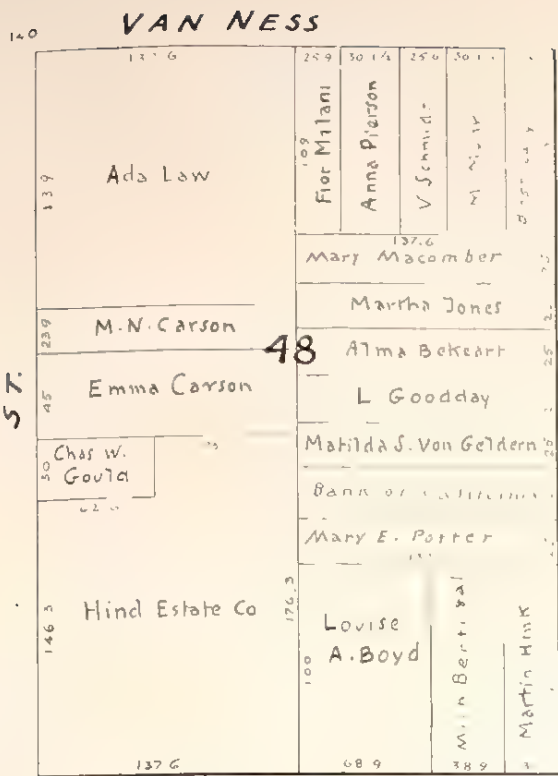 VAN NESS
140
137 6
25 9
30 1/2
25 6
30 1
139
Ada Law
109
Fior Milani
Anna Pierson
V Schmidt
M
137.6
Mary Macomber
Martha Jones
23 9
M. N. Carson
48
Alma Bekeart
25
ST.
45
Emma Carson
L Goodday
50
Chas W.
Gould
Matilda S. Von Geldern
Bank of California
Mary E. Porter
146 3
Hind Estate Co
176.3
100
Louise
A. Boyd
Martin Hink
137 6
68 9
38 9